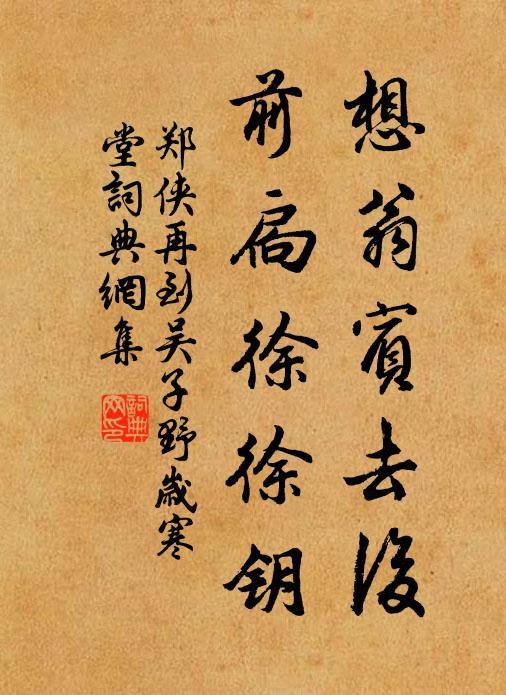 想翁賓去後
前扃徐徐钥
郑侠再到吴子野歲寒
堂詞典網集
詞典
网印